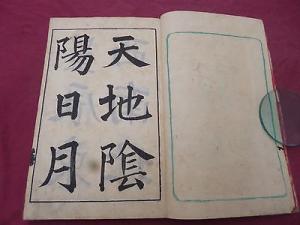 天地陰
陽日月